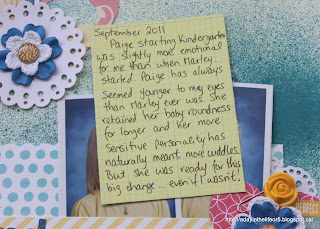 September 2011
Paige starting Kindergarten
was slightly more emotional
for me than when Marley
started. Paige has always
seemed younger to my eyes
than Marley ever was. She
retained her baby roundness
for longer and her more
sensitive personality has
naturally meant more cuddles.
But she was ready for this
big change... even if I wasn't!
PERFECT
http://adayinthelifeof5.blogspot.ca/